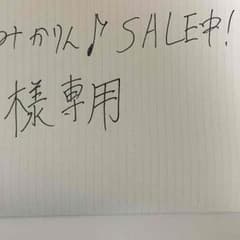 みかりん♪SALE中!
様専用